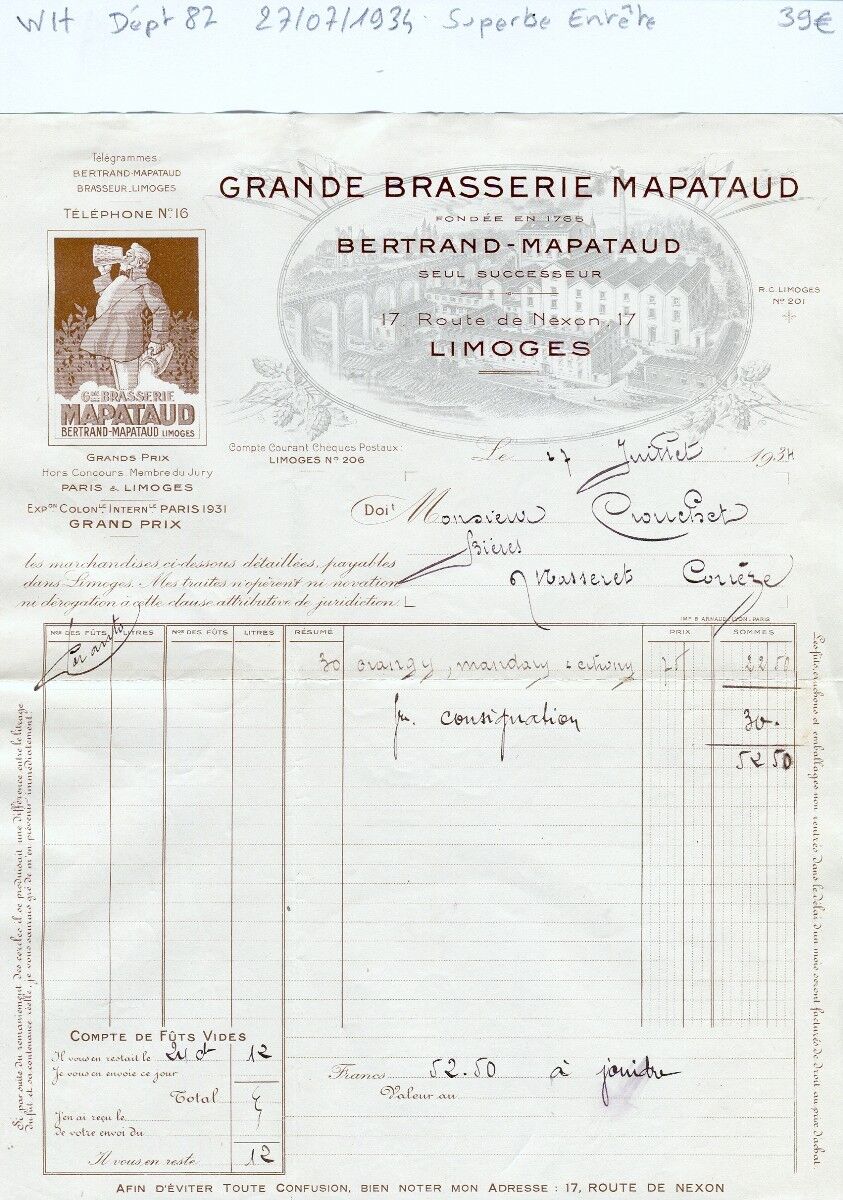 WH Dépt 82 27/07/1934 Superbe Entête 39€
Télégrammes:
BERTRAND-MAPATAUD
BRASSEUR-LIMOGES
TÉLÉPHONE No 16
GRANDE BRASSERIE MAPATAUD
FONDÉE EN 1765
BERTRAND-MAPATAUD
SEUL SUCCESSEUR
17, Route de Nexon, 17
LIMOGES
R.C. LIMOGES
No 201
GDE BRASSERIE
MAPATAUD
BERTRAND-MAPATAUD LIMOGES
GRANDS PRIX
Hors Concours. Membre du Jury
PARIS & LIMOGES
EXPON COLONLE INTERNLE PARIS 1931
GRAND PRIX
Compte Courant Cheques Postaux:
LIMOGES No 206
Le 27 Juillet 1934
Doit Monsieur Crouchet
Bières
Masseret Corrèze
les marchandises ci-dessous détaillées, payables
dans Limoges. Mes traites n'opèrent ni novation
ni dérogation à cette clause attributive de juridiction.
IMP. B. ARNAUD, LYON-PARIS
Nos DES FÛTS LITRES Nos DES FÛTS LITRES RÉSUMÉ PRIX SOMMES
30 75 22 50
consignation 30.
52 50
Si par suite du remaniement des cercles il se produisait une différence entre le litrage
du fût et sa contenance réelle, je vous saurais gré de m'en prévenir immédiatement.
Les fûts, cruchons et emballages non rentrés dans le délai d'un mois seront facturés de droit au prix d'achat.
COMPTE DE FÛTS VIDES
Il vous en restait le 12
Je vous en envoie ce jour
Total
J'en ai reçu le
de votre envoi du
Il vous en reste 12
Francs 52.50 à joindre
Valeur au
AFIN D'ÉVITER TOUTE CONFUSION, BIEN NOTER MON ADRESSE : 17, ROUTE DE NEXON